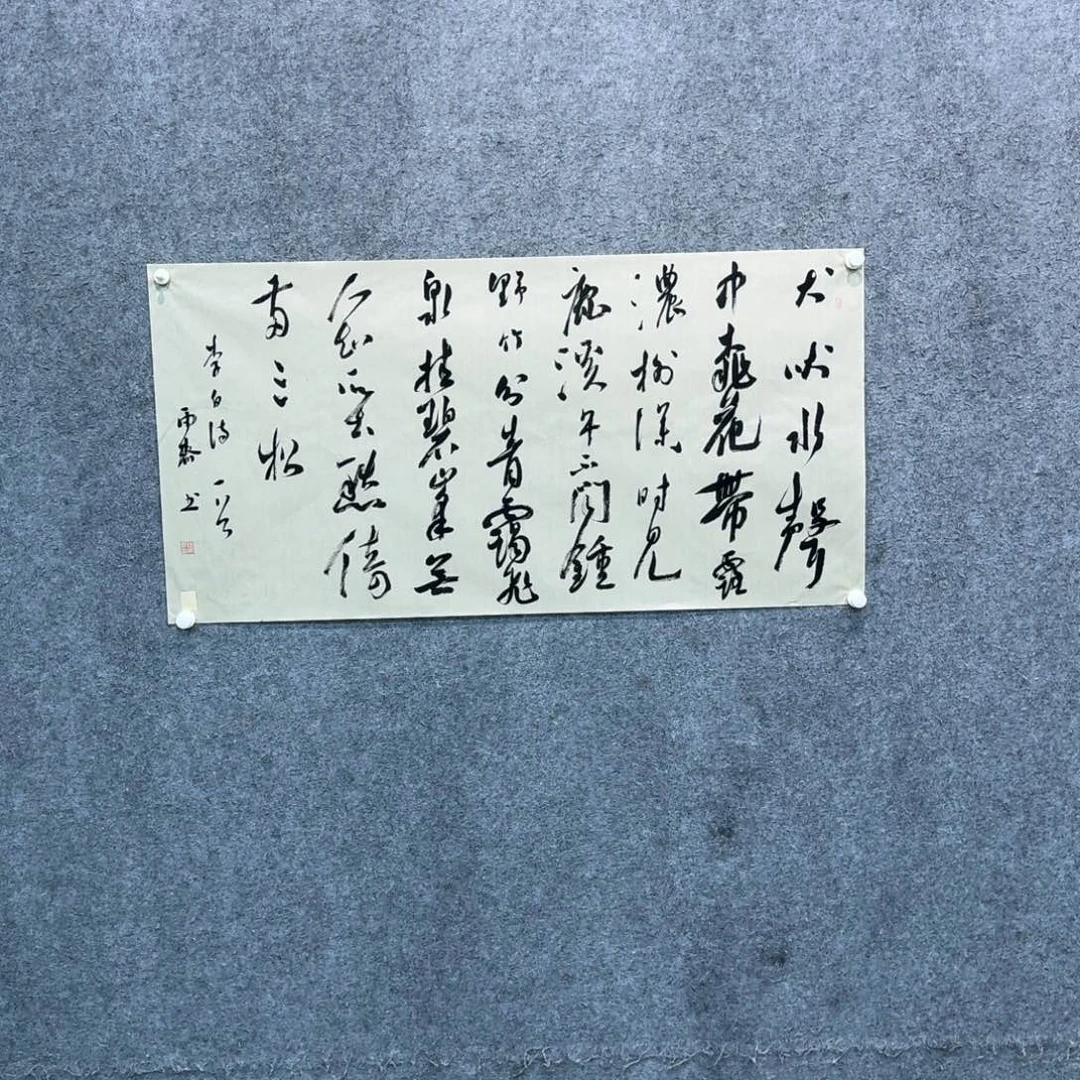 犬吠水聲
中桃花帶露
濃樹深时見
鹿溪午不聞鍾
野竹分青靄飛
泉挂碧峯无
人知所去愁倚
兩三松
李白诗一首
雨 书